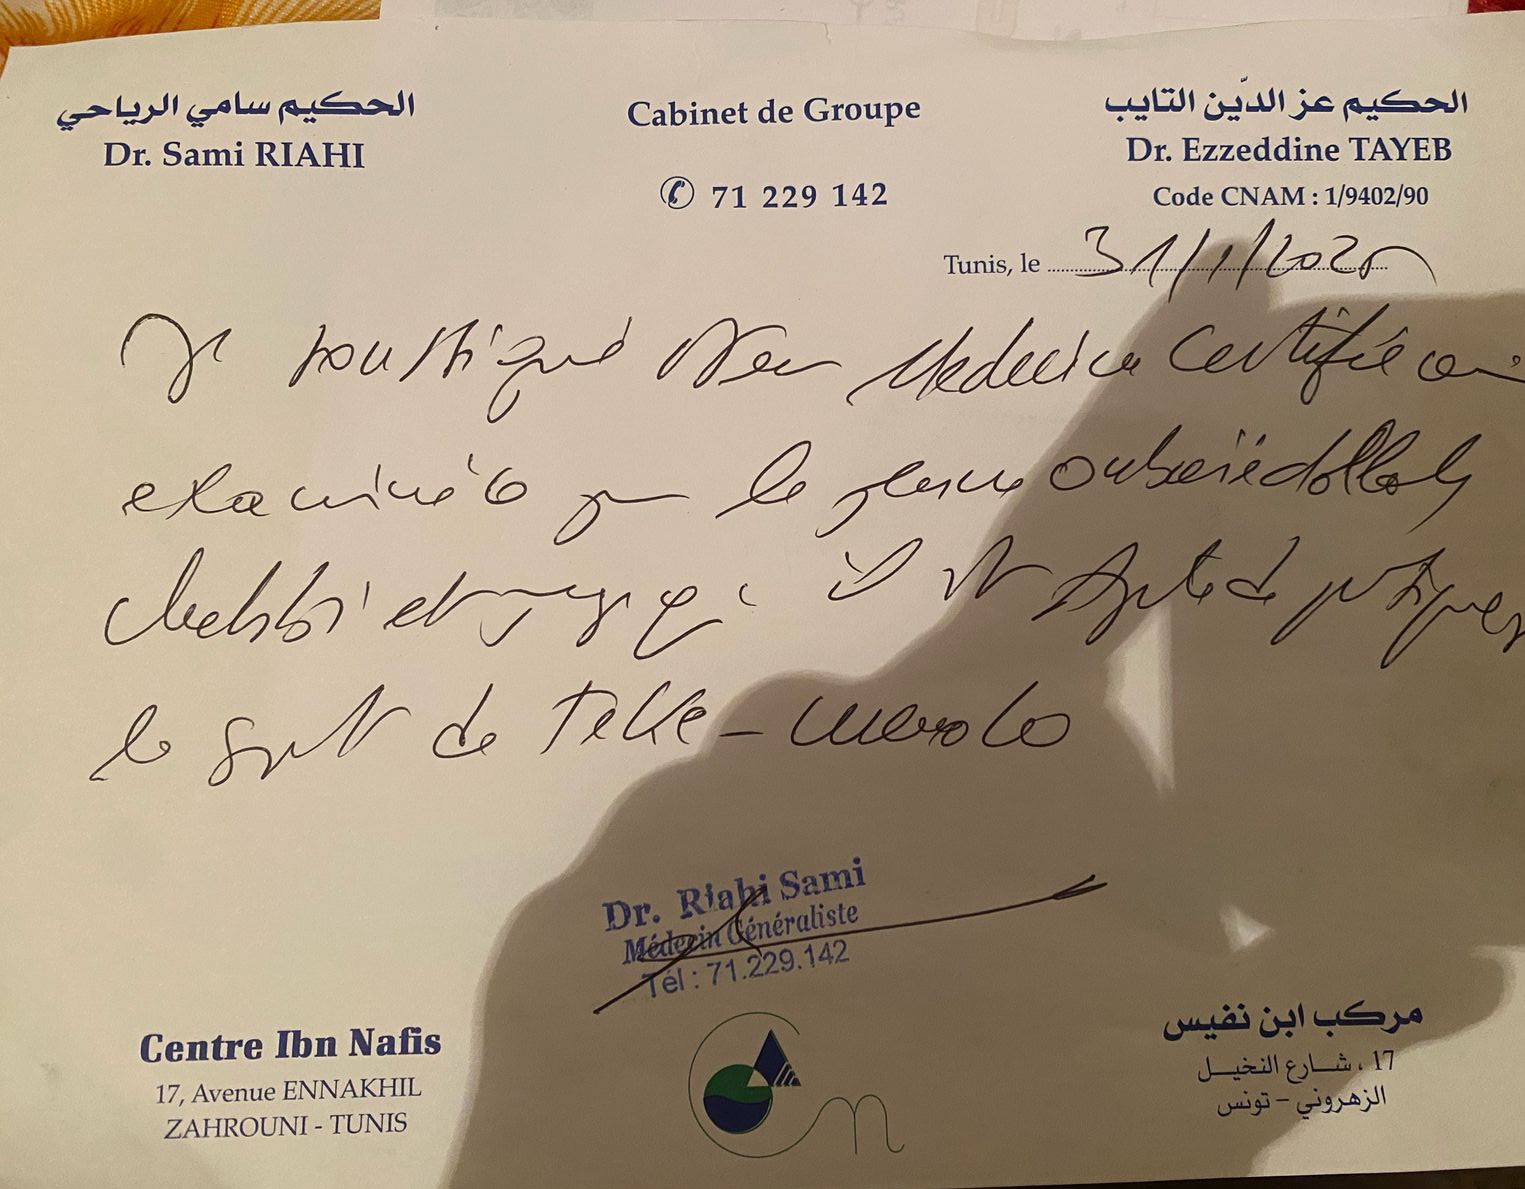 الحكيم سامي الرياحي
Dr. Sami RIAHI
Cabinet de Groupe
✆ 71 229 142
الحكيم عز الدّين التايب
Dr. Ezzeddine TAYEB
Code CNAM : 1/9402/90
Tunis, le 31/1/2025
Je soussigné Dr en Médecine certifie
examiné le jeune
chebbi et il est apte de pratiquer
le sport de
Dr. Riahi Sami
Médecin Généraliste
Tél : 71.229.142
Centre Ibn Nafis
17, Avenue ENNAKHIL
ZAHROUNI - TUNIS
مركب ابن نفيس
17 ، شارع النخيل
الزهروني – تونس